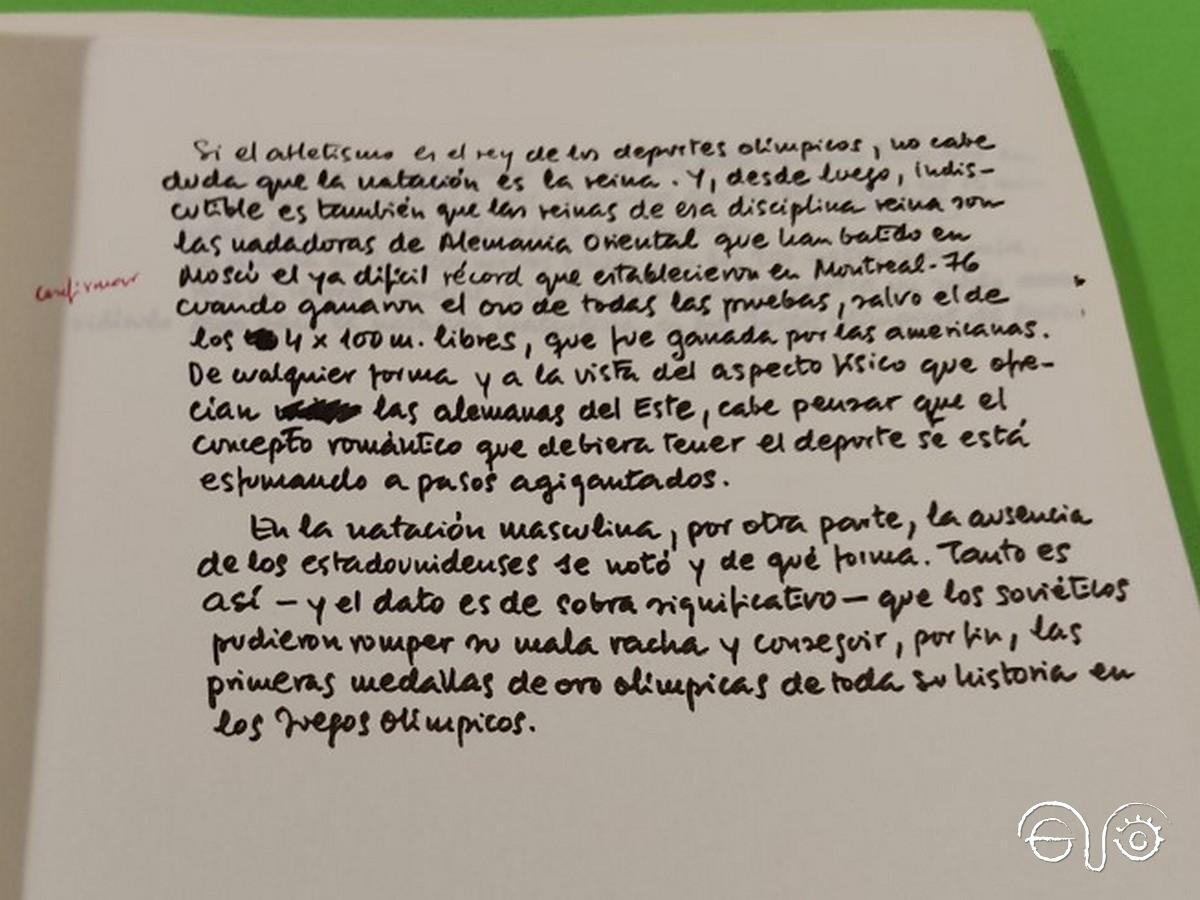 Si el atletismo es el rey de los deportes olímpicos, no cabe
duda que la natación es la reina. Y, desde luego, indis-
cutible es también que las reinas de esa disciplina reina son
las nadadoras de Alemania Oriental que han batido en
confirmar
Moscú el ya difícil récord que establecieron en Montreal-76
cuando ganaron el oro de todas las pruebas, salvo el de
los 4 x 100 m. libres, que fue ganada por las americanas.
De cualquier forma y a la vista del aspecto físico que ofre-
cían las alemanas del Este, cabe pensar que el
concepto romántico que debiera tener el deporte se está
esfumando a pasos agigantados.
En la natación masculina, por otra parte, la ausencia
de los estadounidenses se notó y de qué forma. Tanto es
así - y el dato es de sobra significativo - que los soviéticos
pudieron romper su mala racha y conseguir, por fin, las
primeras medallas de oro olímpicas de toda su historia en
los Juegos Olímpicos.